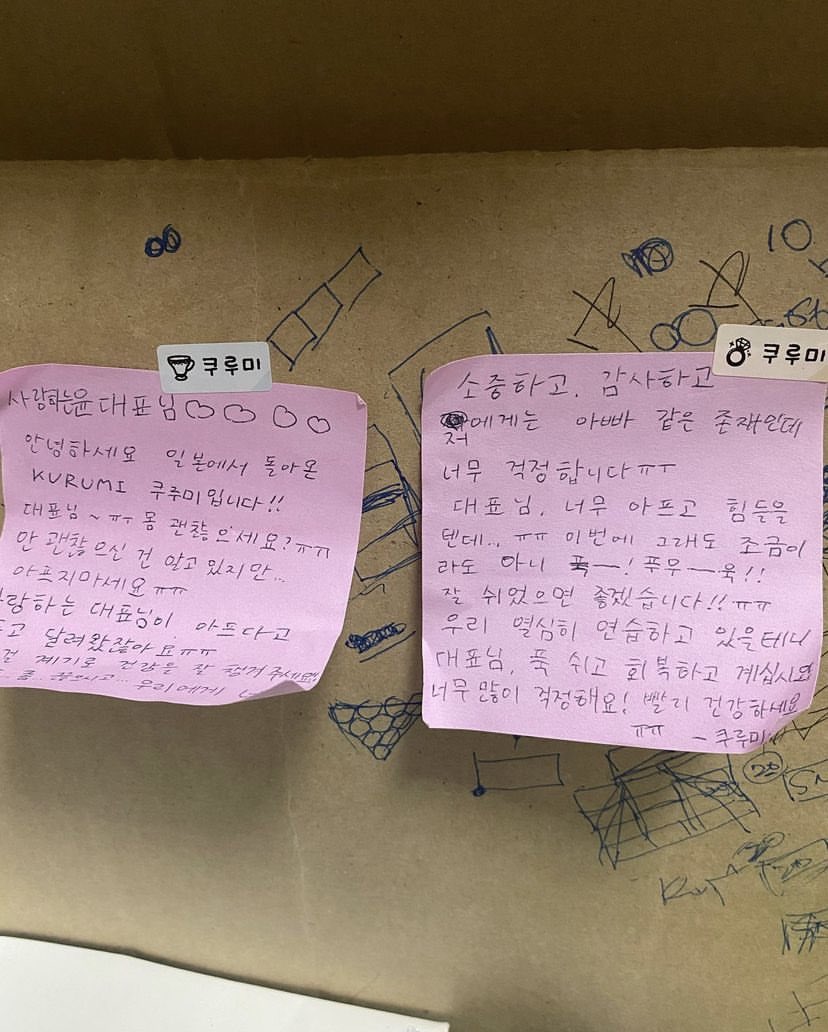 쿠루미
사랑하는 윤대표님
안녕하세요 일본에서 돌아온
KURUMI 쿠루미입니다!!
대표님~ㅠㅜ 몸 괜찮으세요?ㅠㅠ
안 괜찮으신 건 알고 있지만...
아프지마세요ㅠㅠ
랑하는 대표님이 아프다고
고 달려왔잖아요ㅠㅠ
걸 계기로 건강을 잘 챙겨주세요!
우리에게
쿠루미
소중하고, 감사하고
저에게는 아빠 같은 존재인데
너무 걱정합니다ㅠㅜ
대표님, 너무 아프고 힘들을
텐데.. ㅠㅠ 이번에 그래도 조금이
라도 아니 푹ㅡ! 푸우ㅡ욱!!
잘 쉬었으면 좋겠습니다!! ㅠㅠ
우리 열심히 연습하고 있을테니
대표님, 푹 쉬고 회복하고 계십시오
너무 많이 걱정해요! 빨리 건강하세요
ㅠㅠ -쿠루미
10